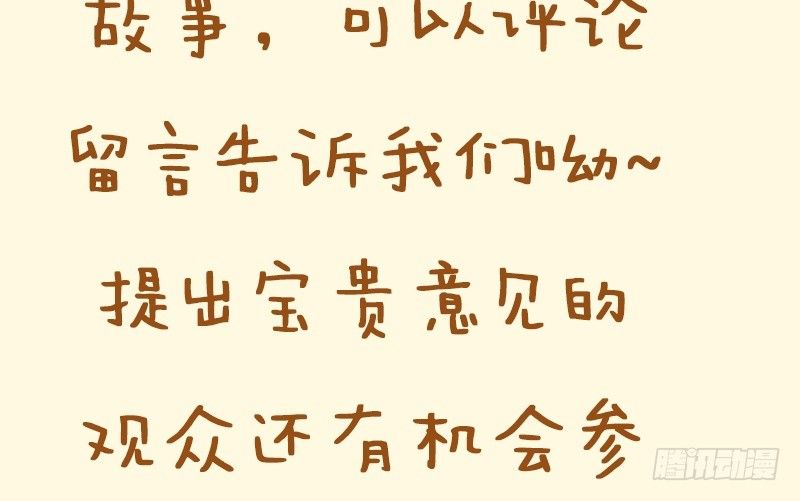 故事，可以评论
留言告诉我们呦~
提出宝贵意见的
观众还有机会参
腾讯动漫